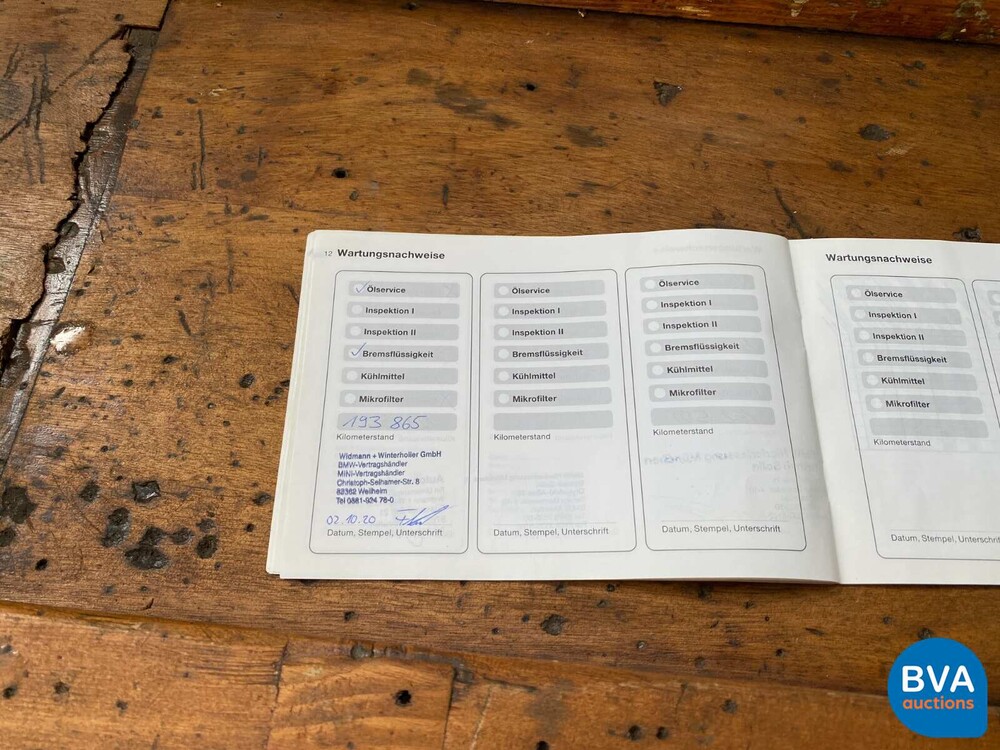 12 Wartungsnachweise
Ölservice
Inspektion I
Inspektion II
Bremsflüssigkeit
Kühlmittel
Mikrofilter
193 865
Kilometerstand
Widmann + Winterholler GmbH
BMW-Vertragshändler
MINI-Vertragshändler
Christoph-Selhamer-Str. 8
82362 Weilheim
Tel 0881-924 78-0
02.10.20
Datum, Stempel, Unterschrift
Ölservice
Inspektion I
Inspektion II
Bremsflüssigkeit
Kühlmittel
Mikrofilter
Kilometerstand
Datum, Stempel, Unterschrift
Ölservice
Inspektion I
Inspektion II
Bremsflüssigkeit
Kühlmittel
Mikrofilter
Kilometerstand
Datum, Stempel, Unterschrift
Wartungsnachweise
Ölservice
Inspektion I
Inspektion II
Bremsflüssigkeit
Kühlmittel
Mikrofilter
Kilometerstand
Datum, Stempel, Unterschrif
BVA
auctions